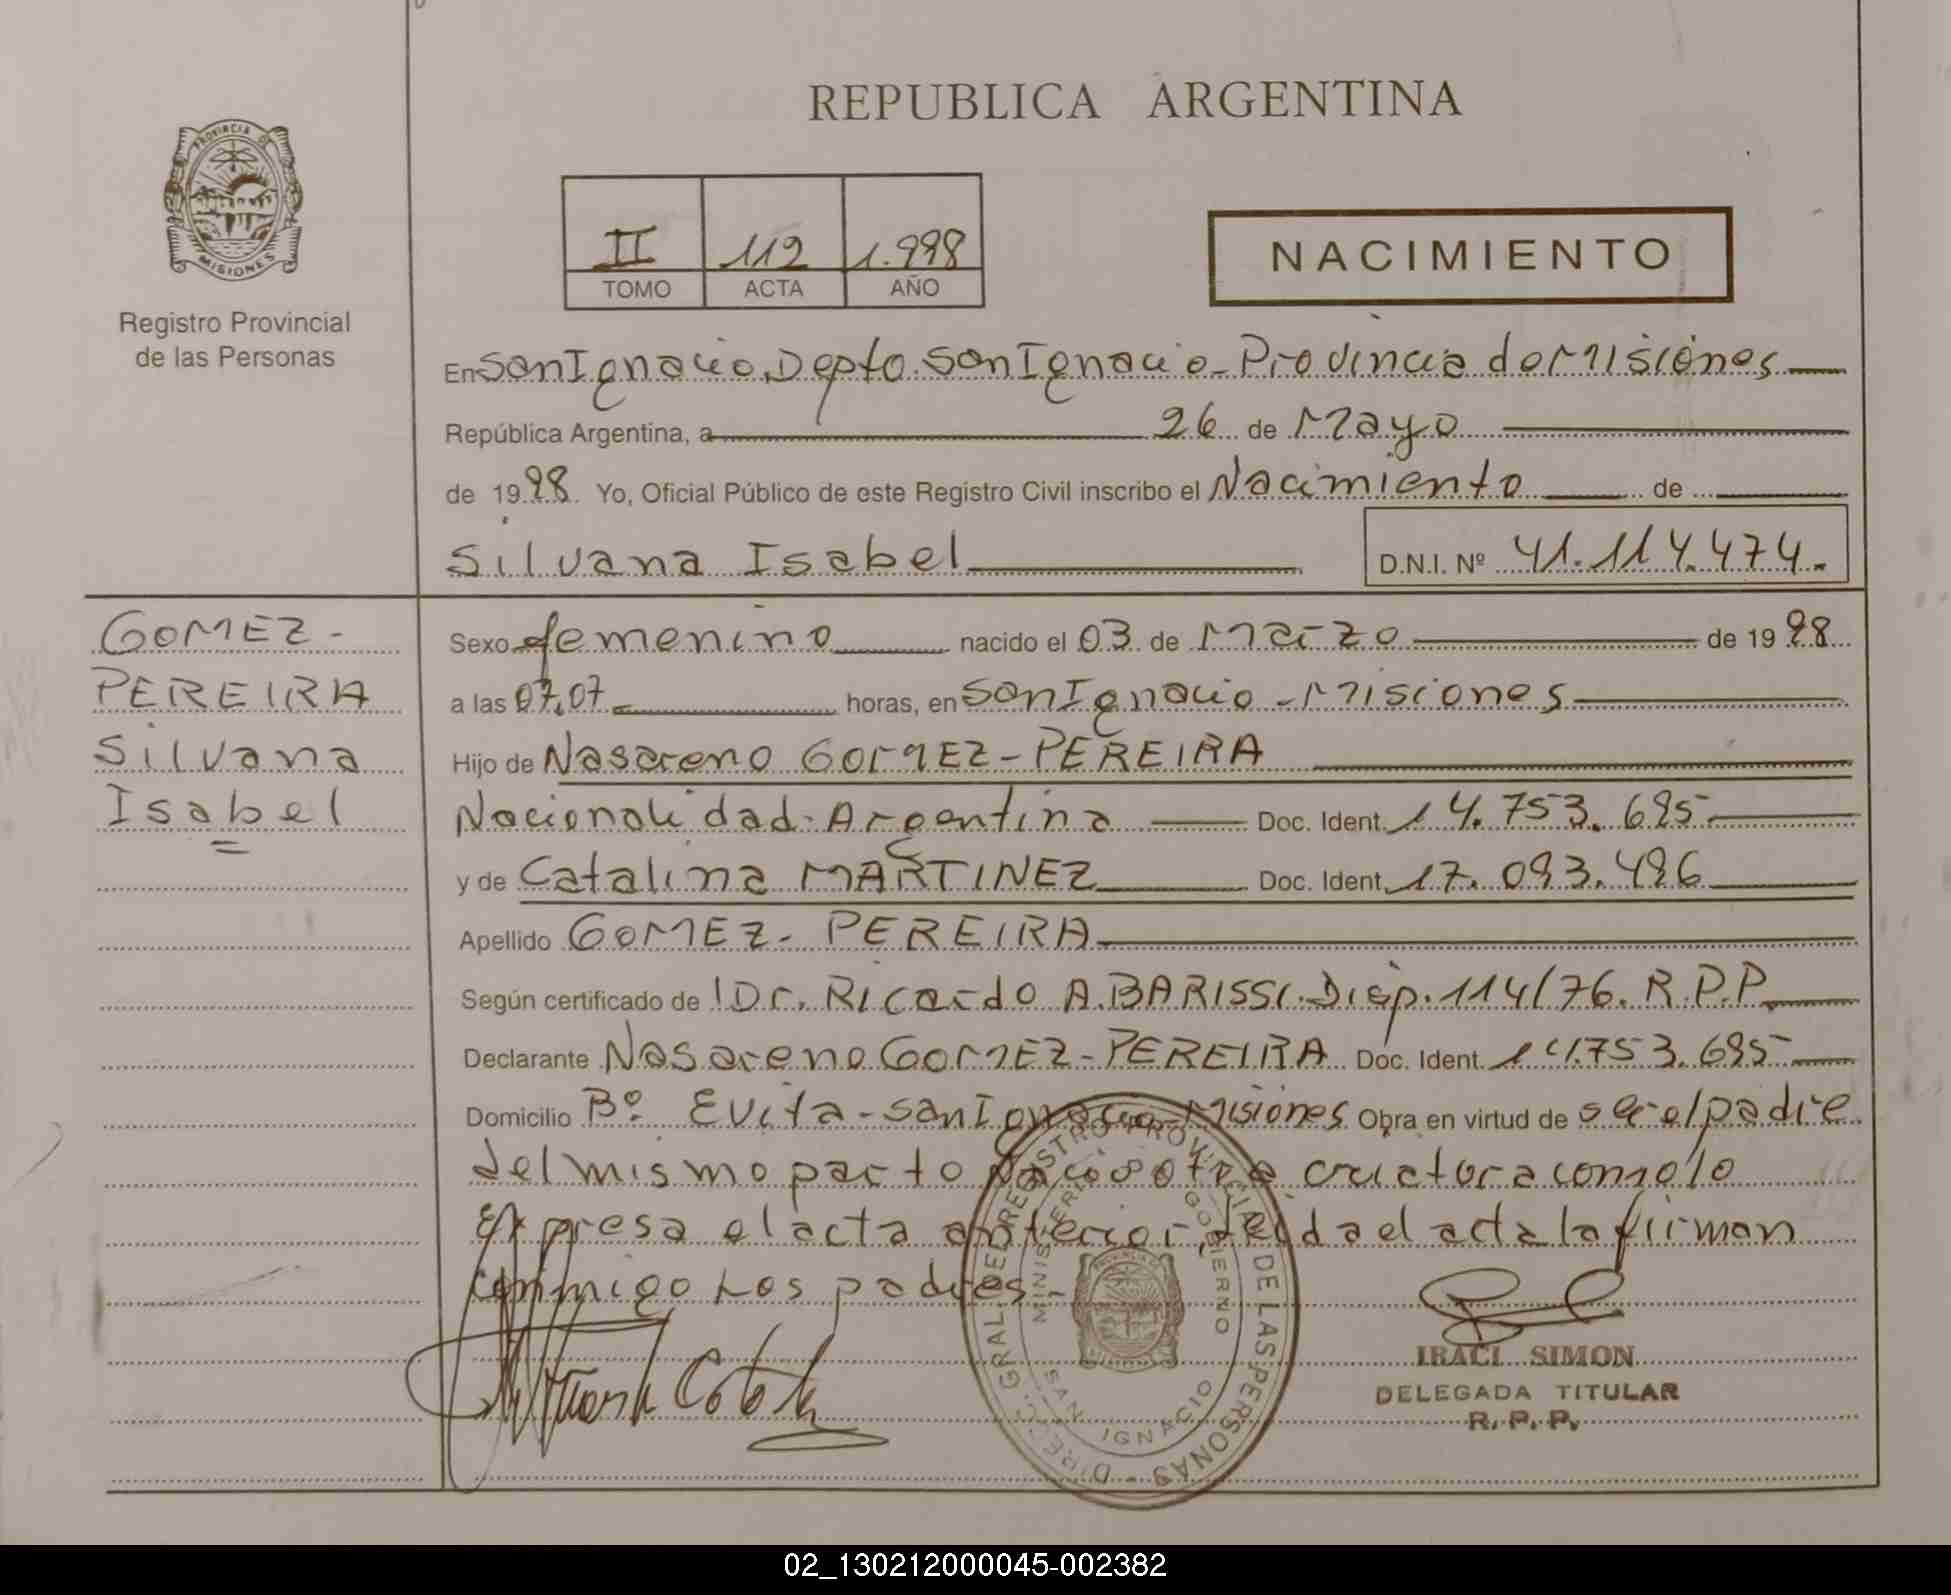 REPUBLICA ARGENTINA
PROVINCIA DE
MISIONES
Registro Provincial
de las Personas
II 112 1.998
TOMO ACTA AÑO
NACIMIENTO
En San Ignacio, Depto. San Ignacio - Provincia de Misiones
República Argentina, a 26 de Mayo
de 1998. Yo, Oficial Público de este Registro Civil inscribo el Nacimiento de
Silvana Isabel D.N.I. Nº 41.114.474.
GOMEZ-
PEREIRA
Silvana
Isabel
Sexo femenino nacido el 03 de Marzo de 1998
a las 07,07 horas, en San Ignacio - Misiones
Hijo de Nasareno GOMEZ-PEREIRA
Nacionalidad Argentina Doc. Ident. 14.753.695
y de Catalina MARTINEZ Doc. Ident. 17.093.496
Apellido GOMEZ- PEREIRA
Según certificado de Dr. Ricardo A. BARISSI. Disp. 114/76. R.P.P.
Declarante Nasareno GOMEZ-PEREIRA Doc. Ident. 14.753.695
Domicilio Bº. Evita - San Ignacio - Misiones Obra en virtud de ser el padre
del mismo parto nacio otra criatura como lo
Expresa el acta anterior, leida el acta la firman
conmigo Los padres -
DIREC. GRAL. DEL REGISTRO PROVINCIAL DE LAS PERSONAS
MINISTERIO GOBIERNO
SAN IGNACIO
IRACI SIMON
DELEGADA TITULAR
R. P. P.
02_130212000045-002382